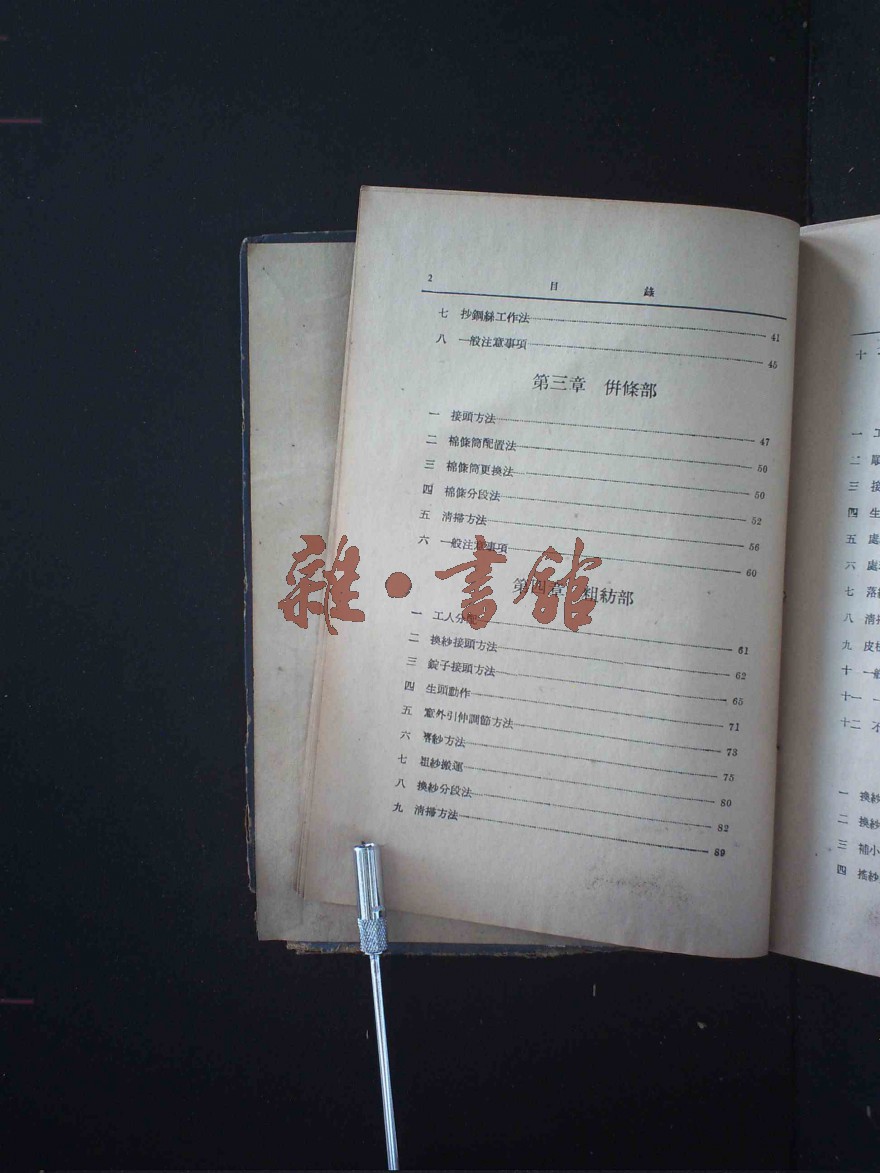 2 目 錄
七 抄鋼絲工作法 41
八 一般注意事項 45
第三章 併條部
一 接頭方法 47
二 棉條筒配置法 50
三 棉條筒更換法 50
四 棉條分段法 52
五 清掃方法 56
六 一般注意事項 60
第四章 粗紡部
一 工人分配 61
二 換紗接頭方法 62
三 錠子接頭方法 65
四 生頭動作 71
五 意外引伸調節方法 73
六 紗方法 75
七 粗紗搬運 80
八 換紗分段法 82
九 清掃方法 89
雜·書館
十
一 工
二
三 接
四 生
五 處
六 處
七 落
八 清
九 皮
十 一般
十一 一
十二 不
一 換紗
二 換紗
三 補小
四 搖紗